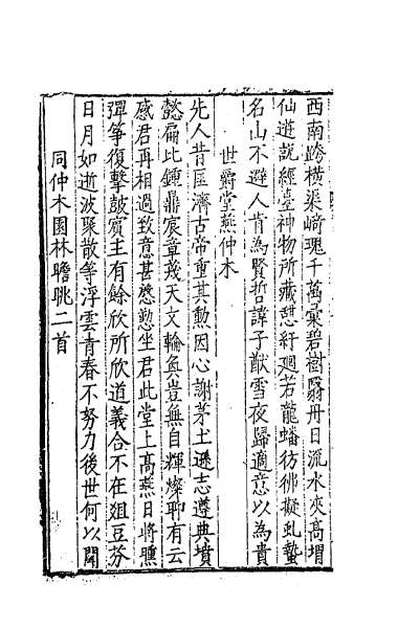 西南跨橫渠﨑瑰千萬彙碧樹翳丹日流水夾高堳
仙遊說經臺神物所藏憇紆廻若龍蟠彷彿擬虬蟄
名山不避人肯為賢哲諱子猷雪夜歸適意以為貴
世爵堂燕仲木
先人昔匡濟古帝重其勲因心謝茅土遜志遵典墳
懿扁比鍾鼎宸章茂天文輪奐豈無自輝燦聊有云
感君再相過致意甚慇懃坐君此堂上高燕日將曛
彈箏復擊鼓賓主有餘欣所欣道義合不在俎豆芬
日月如逝波聚散等浮雲青春不努力後世何以聞
同仲木園林瞻眺二首